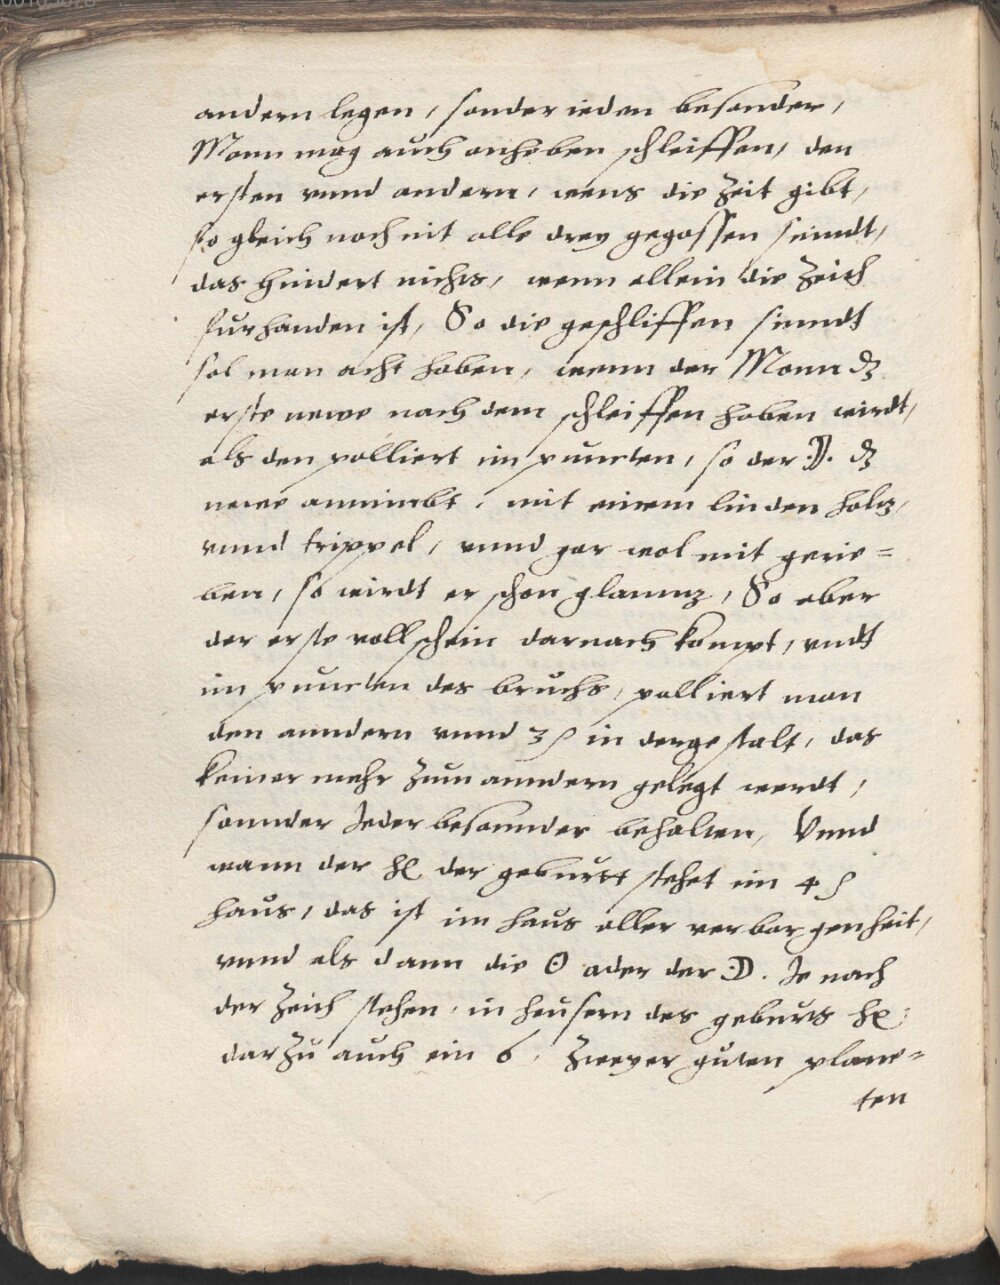 andern legen, sonder ieden besonder,
Mann mag auch anheben schleiffen, den
ersten vnnd andern, wens die Zeit gibt,
so gleich noch nit alle drey gegossen seindt,
das hindert nichts, wenn allein die Zeich
furhanden ist, So die geschliffen sinndt
sol man acht haben, wenn der Monn dz
erste newe nach dem schleiffen haben wirdt,
als den palliert im puncten, so der ☽. dz
newe annimbt, mit einem linden holz,
vnnd trippel, vnnd gar wol mit gerie=
ben, so wirdt er schon glannz, So aber
der erste vollschein darnach kompt, vndt
im puncten des bruchs, palliert man
den anndern vnnd 3ß in dergestalt, das
keiner mehr Zum anndern gelegt werdt,
sonnder Jeder besonnder behalten, Vnnd
wann der h der geburtt stehet im 4ß
haus, das ist im haus aller verborgenheit,
vnnd als dann die ☉ oder der ☽. Je nach
der Zeich stehen, in heusern des geburts h
darzu auch ein 6, Zweyer guten plane=
ten